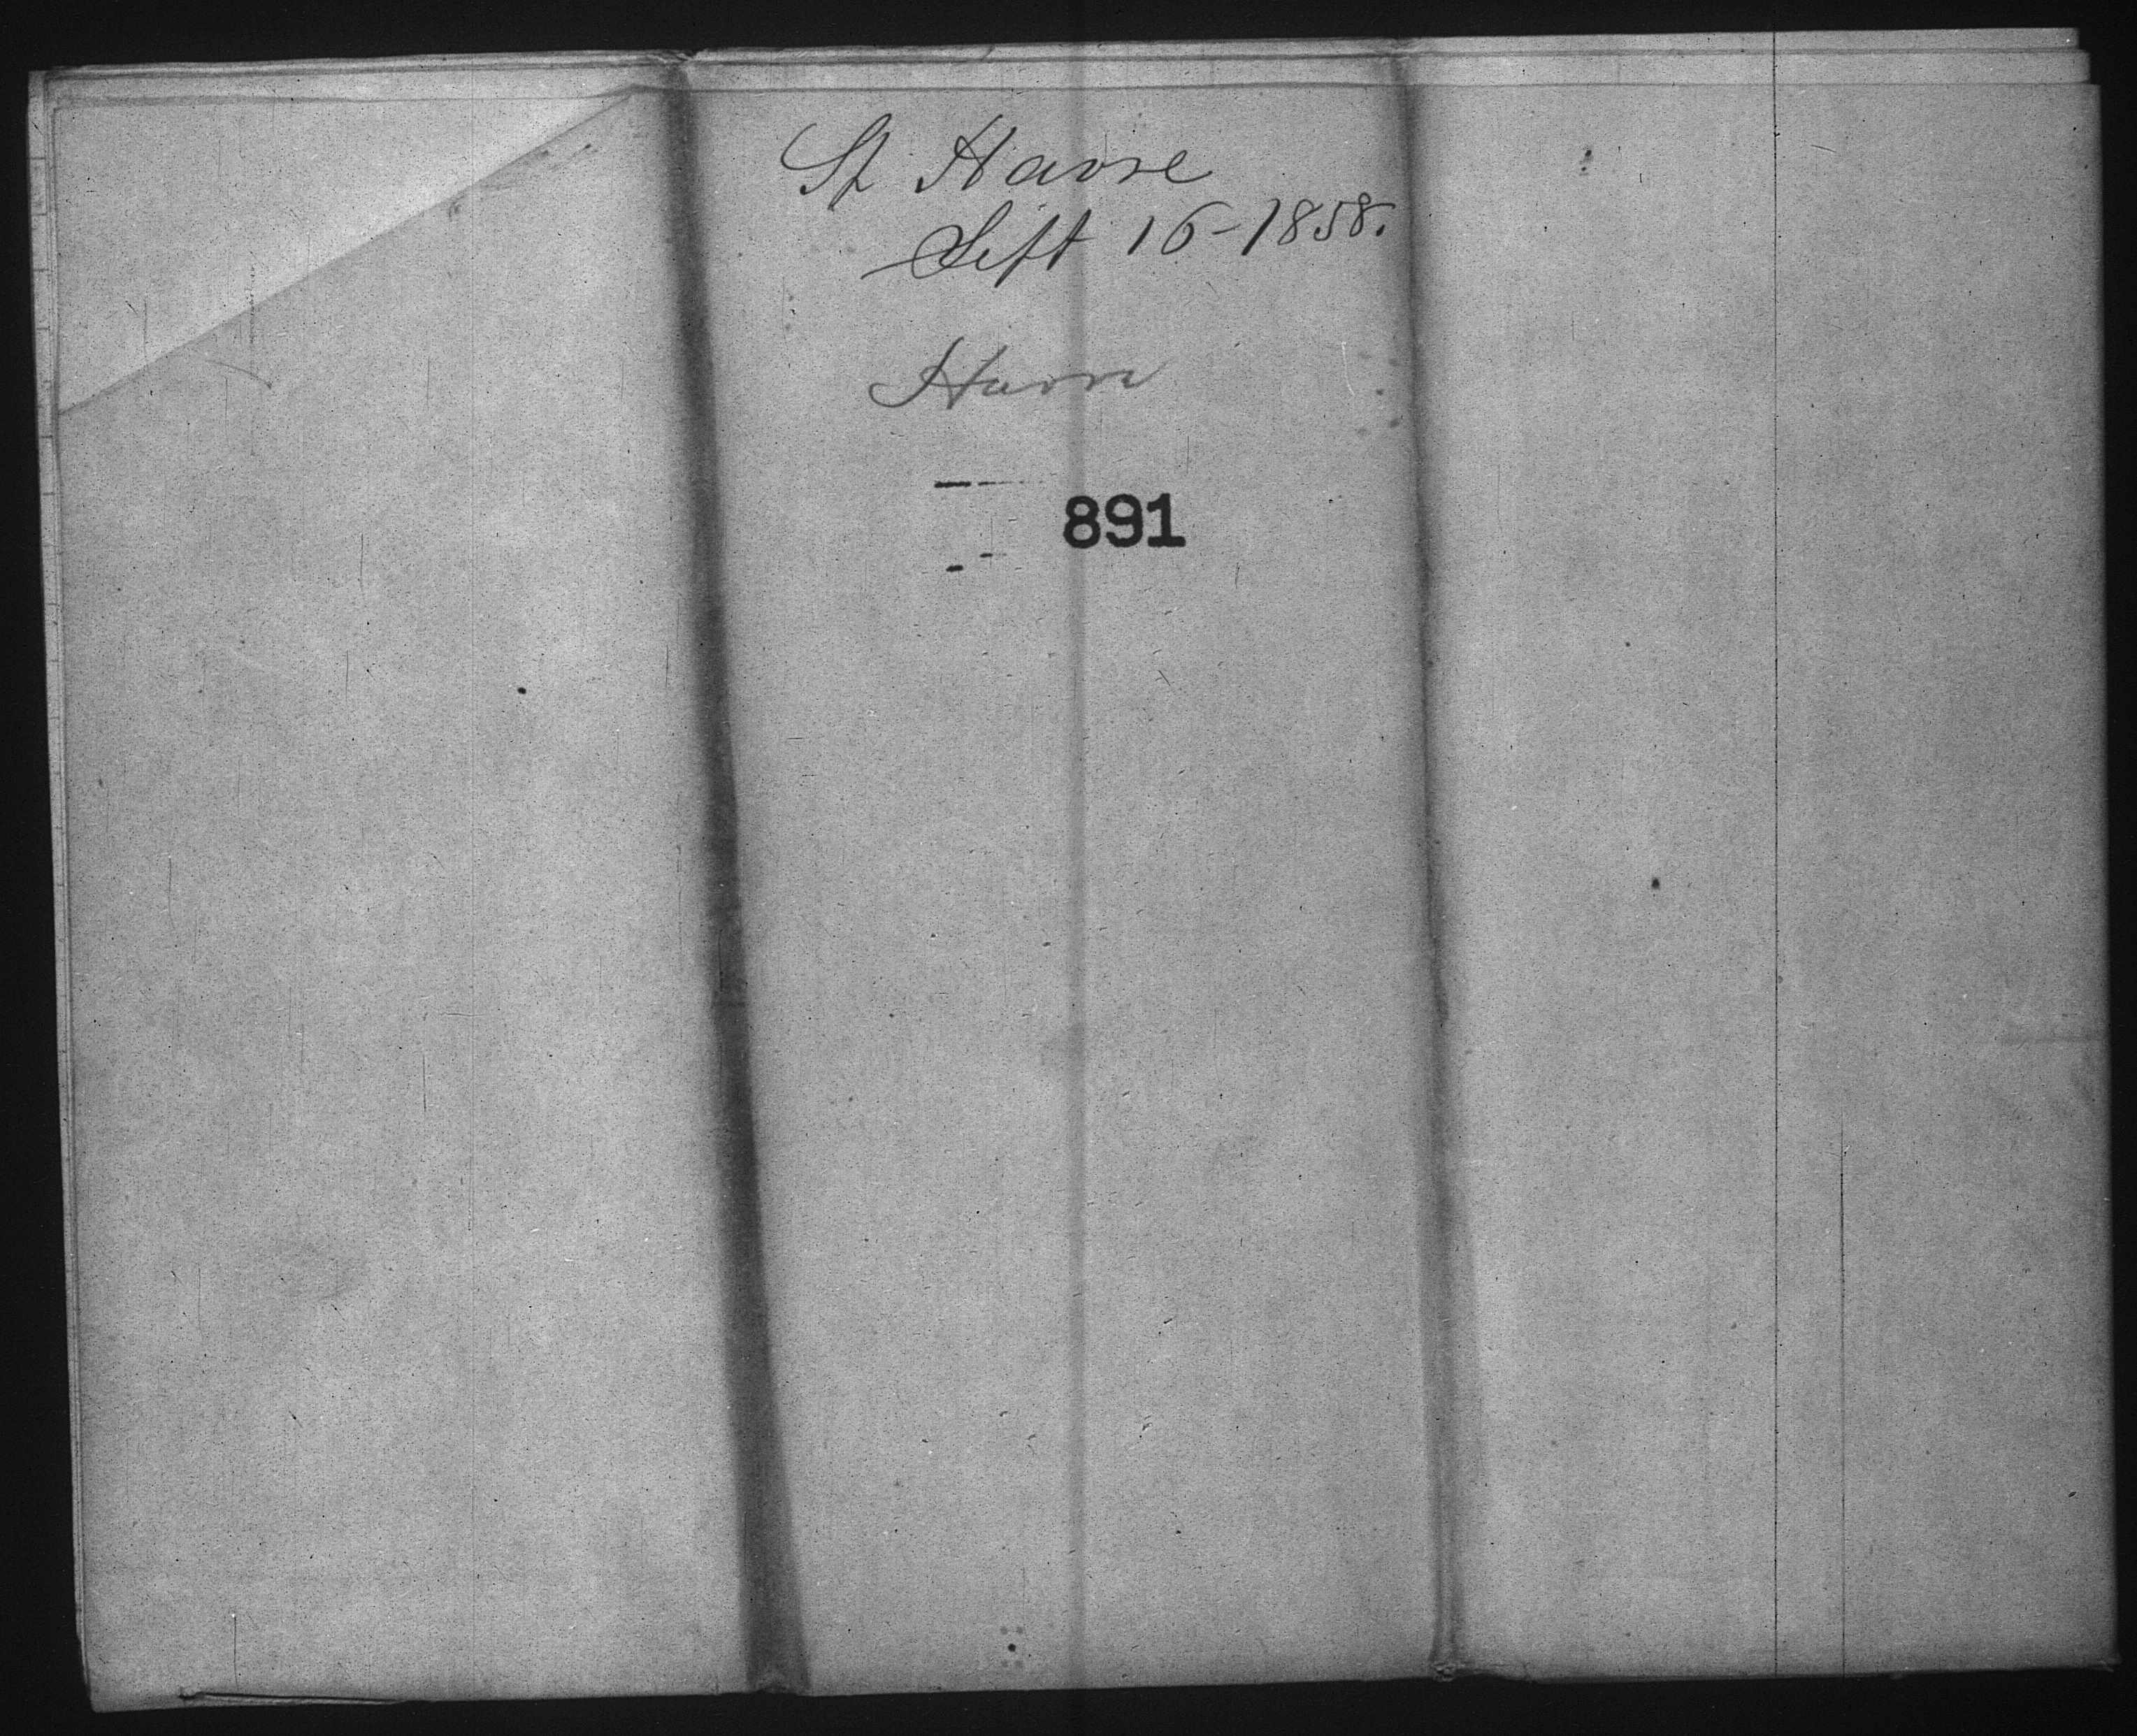 St Havre
Sept 16-1858.
Havre
891